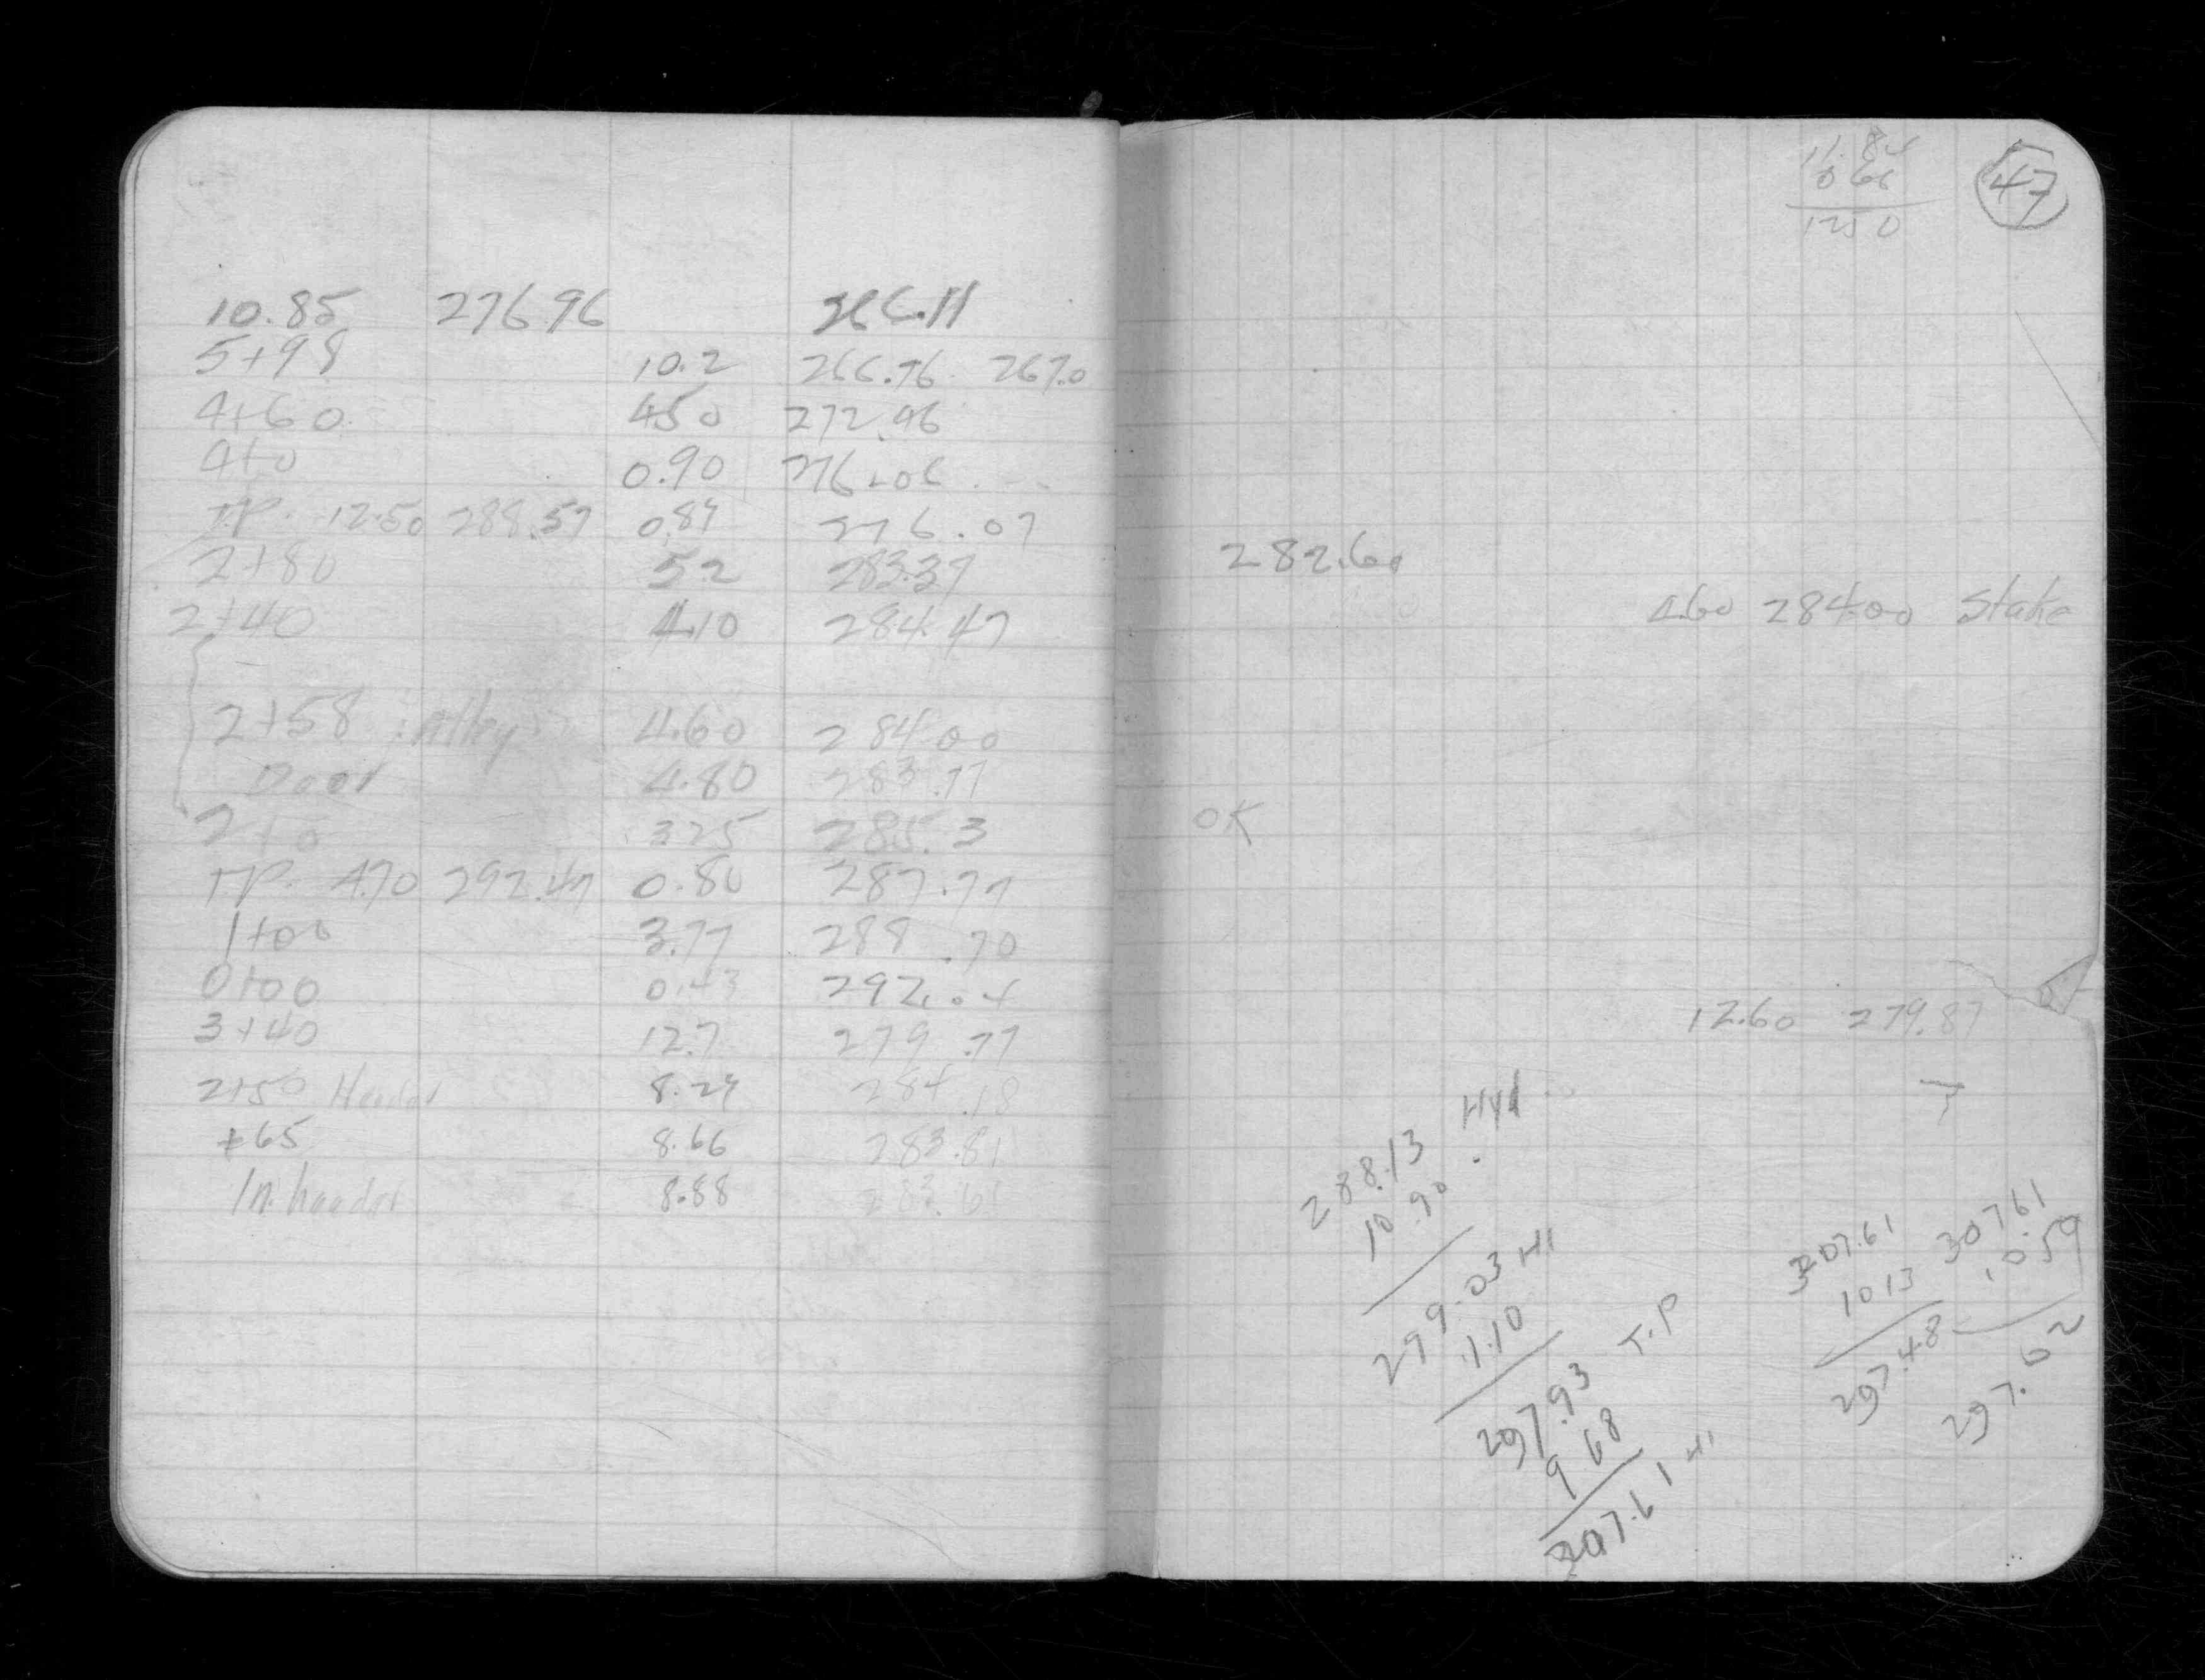 10.85 276.96 266.11
5+98 10.2 266.76 267.0
4+60 4.50 272.96
4+0 0.90 276.06
T.P. 12.50 288.57 0.89 276.07
2+80 5.2 283.37
2+40 4.10 284.47
2+58 Alley 4.60 284.00
Door 4.80 283.77
2+0 3.25 285.3
T.P. 4.70 292.47 0.80 287.77
1+00 3.77 288.70
0+00 0.43 292.04
3+40 12.7 279.77
2+50 Header 8.29 284.18
+65 8.66 283.81
In. header 8.88 283.61
11.84
0.66
1250
47
282.60
4.60 284.00 Stake
OK
12.60 279.87
288.13 Hyd
10.90
299.03 HI
1.10
297.93 T.P
9.68
307.61 HI
307.61
10 13
297.48
307.61
10.59
297.02